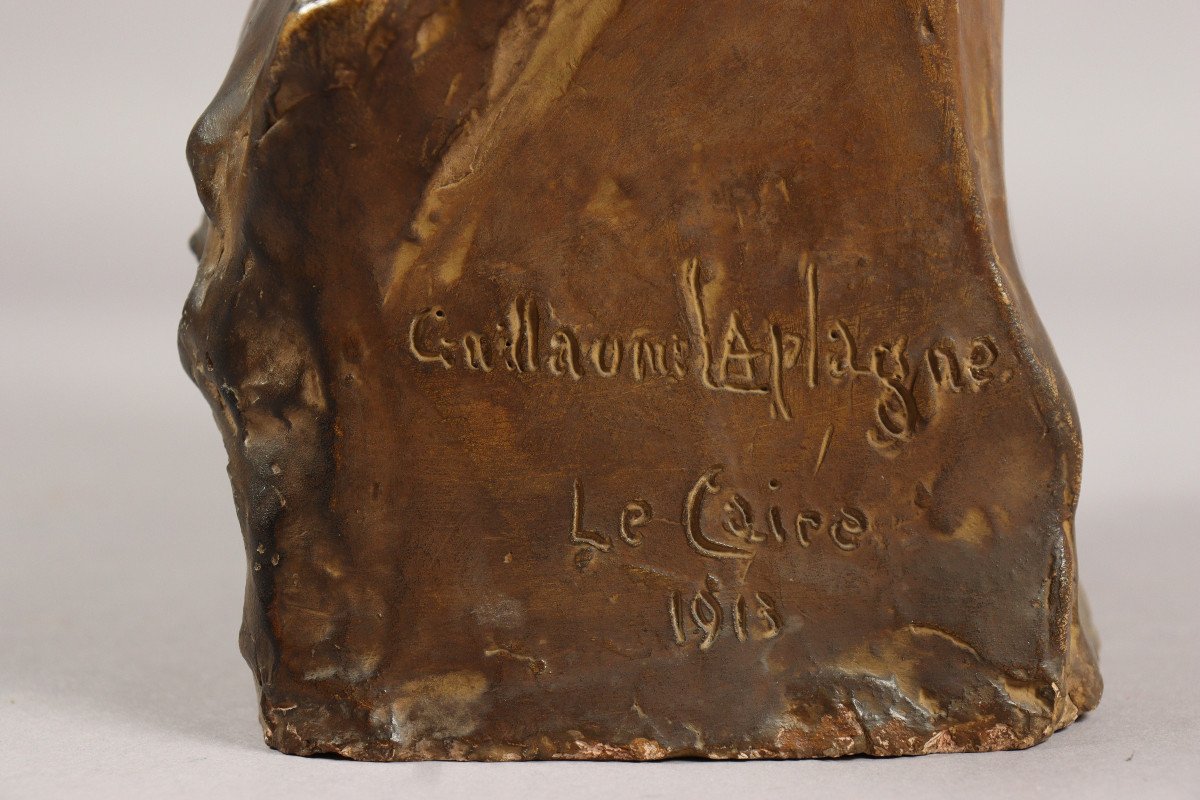 Guillaume LAplagne
Le Caire
1913